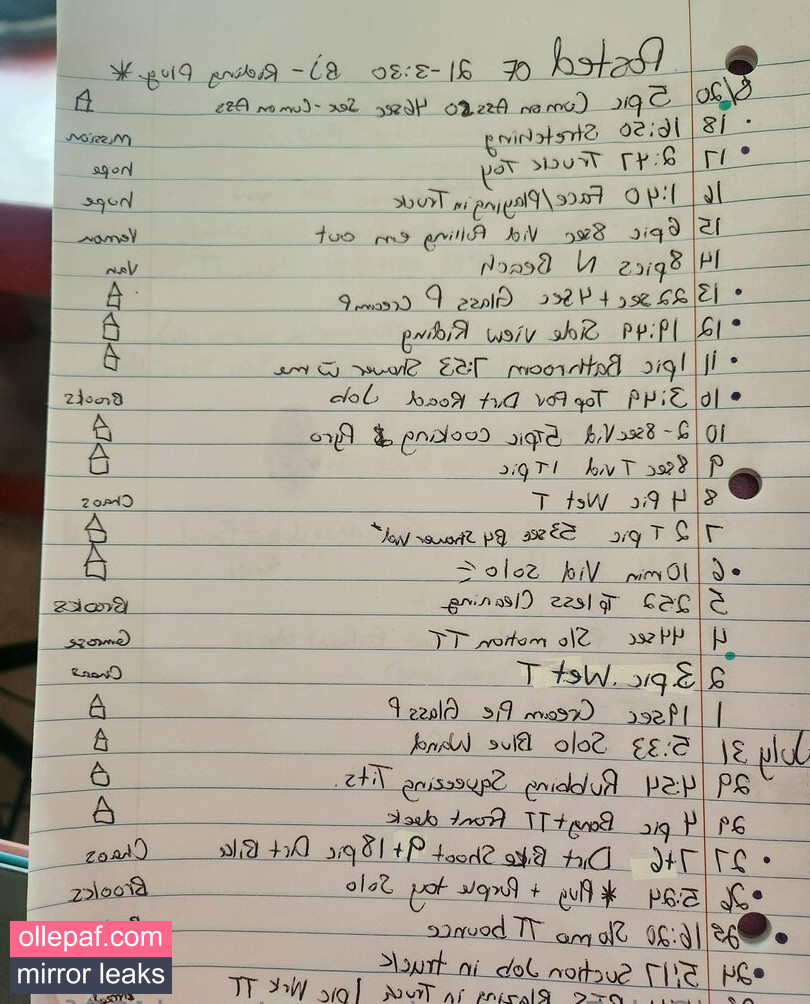 Posted OF 21-3:30 BJ - Riding Plug *
8/20 5pic Cum on Ass 46sec Sex-Cum on Ass
18 16:50 Stretching Mission
17 2:47 Truck Toy Nope
16 1:40 Face/Playing in Truck Nope
15 6pic 8sec Vid Pulling em out Vernon
14 8pics N Beach Van
13 22sec + 4sec Glass P CreamP
12 19:49 Side view Riding
11 1pic Bathroom 7:53 Shower w me
10 3:49 Top Pov Dirt Road Job Brooks
10 2-8sec Vid 5Tpic Cooking Pyro
9 8sec T vid 1Tpic
8 4 Pic Wet T Chaos
7 2 T pic 53sec By Shower Vid*
6 10min Vid Solo
5 2:52 Tpless Cleaning Brooks
4 44sec Slo motion TT
2 3 pic Wet T Chaos
1 19sec Cream Pie Glass P
July 31 5:33 Solo Blue Wand
29 4:54 Rubbing Squeezing Tits.
29 4 pic Bong + TT Front deck
27 7+6 Dirt Bike Shoot 9+18pic Dirt Bike Chaos
26 5:24 * Plug + Purple toy Solo Brooks
25 16:20 Slo mo TT bounce
24 5:17 Suction Job in truck
Blazing in Truck 1pic Wet TT
ollepaf.com
mirror leaks